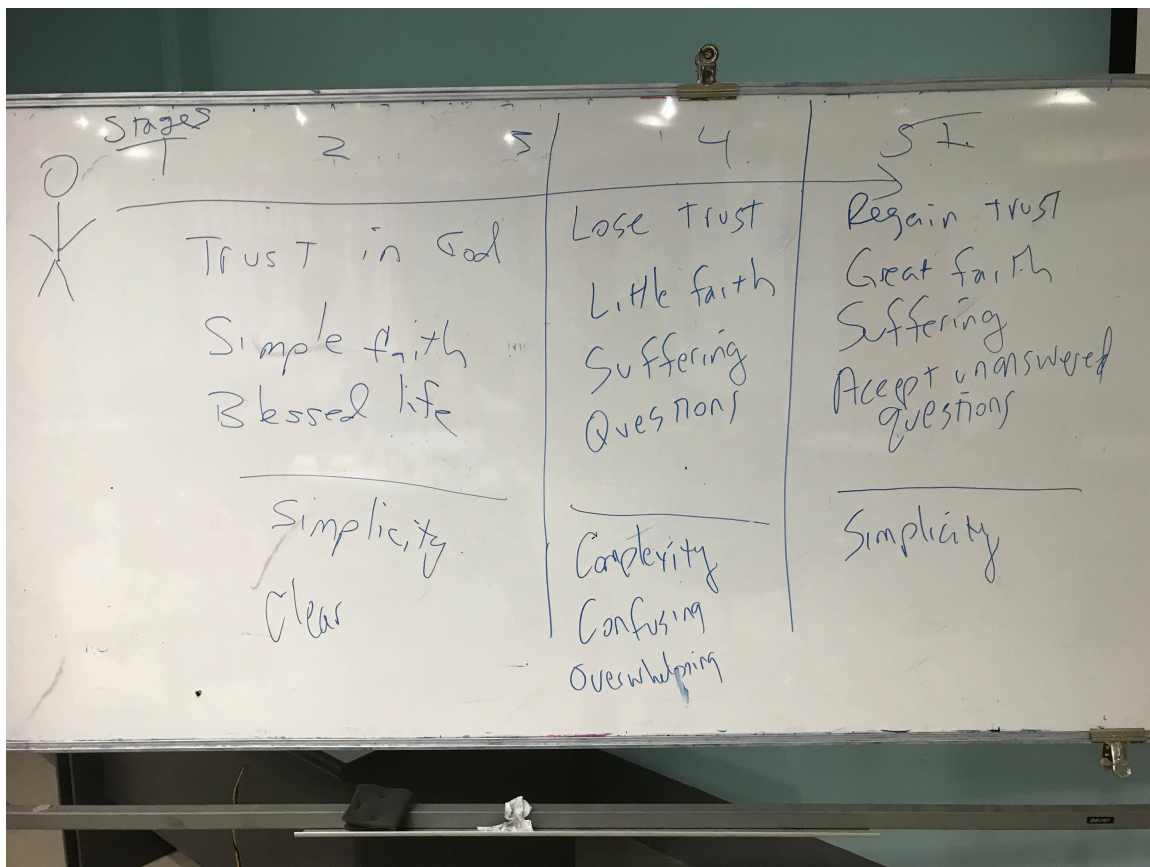 Stages
1 2 3 4 5
Trust in God
Simple faith
Blessed life
Simplicity
Clear
Lose trust
Little faith
Suffering
Questions
Complexity
Confusing
Regain trust
Great faith
Suffering
Accept unanswered
questions
Simplicity